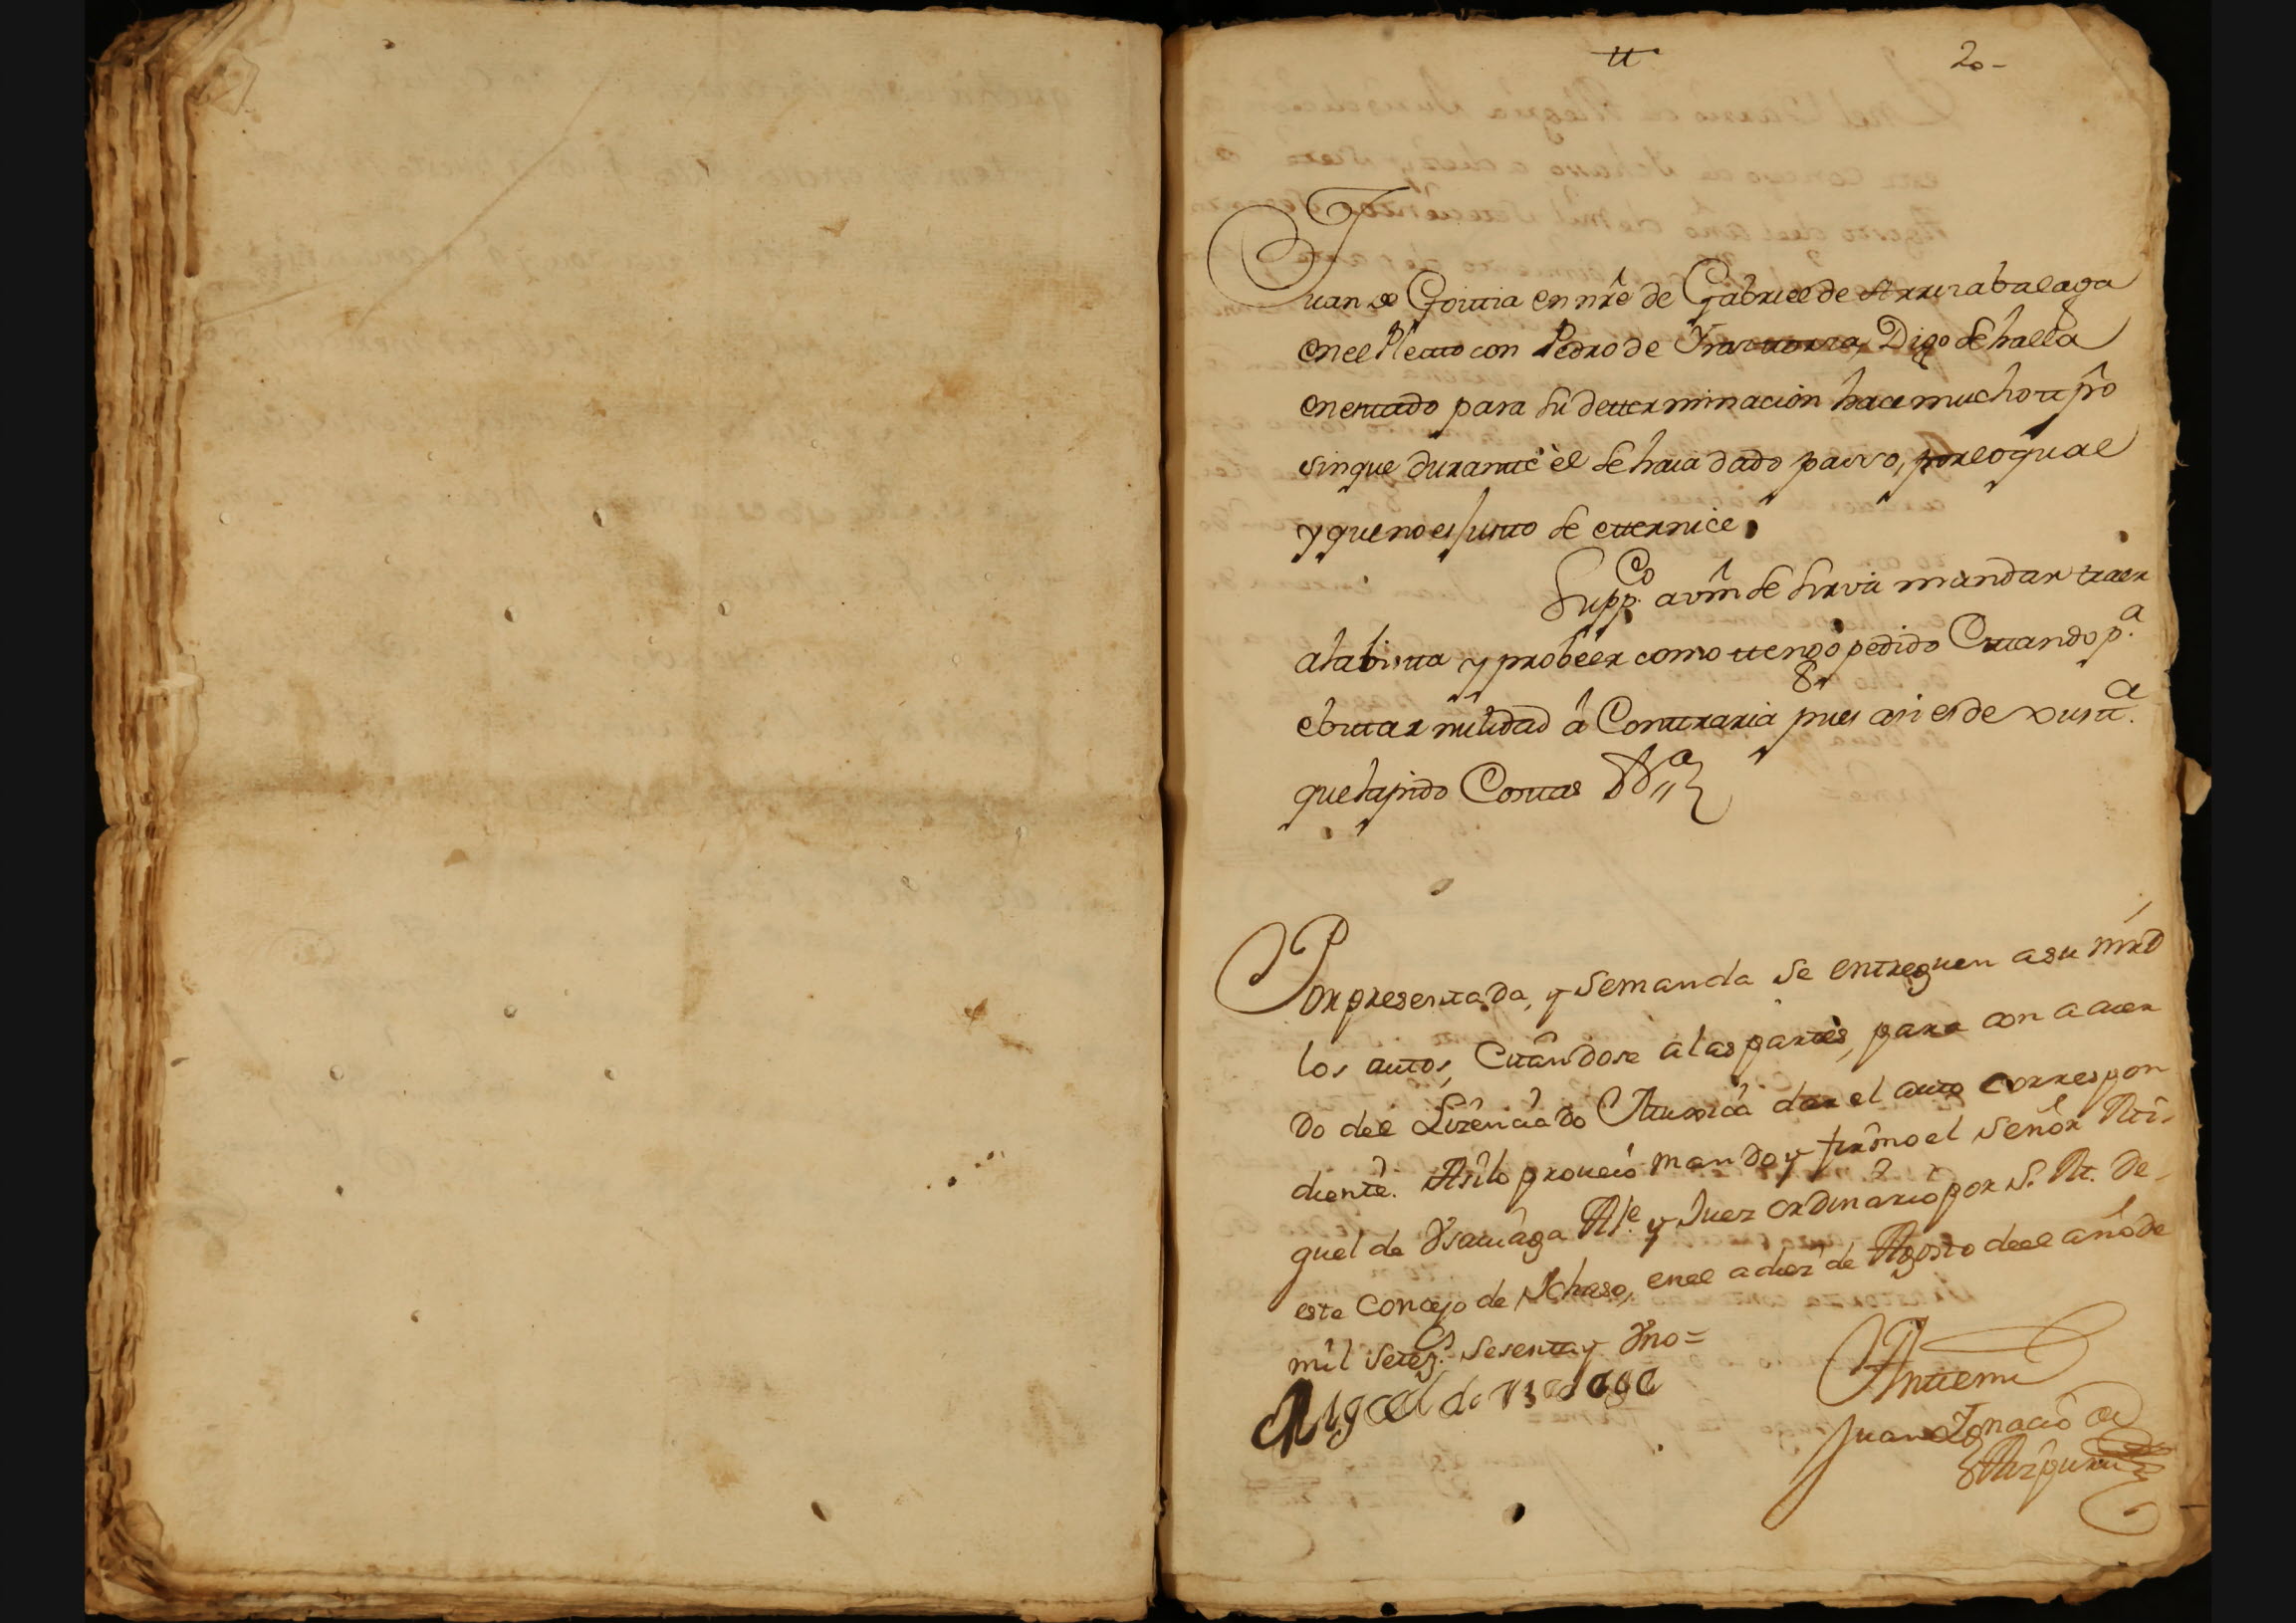 tt 20-
Juan de Goitia en nre de Gabriel de Arrizabalaga
en el Pleito con Pedro de Ynarttorza, Digo se halla
en esttado para su detterminacion hace mucho ttpño
sin que durantte èl se haia dado passo, por lo qual
y que no es justto se etternice
Suppco a vm se sirva mandar traer
a la bistta y probeer como ttengo pedido Cittando pa
ebittar nulidad â Conttraria pues asi es de justta
que la pido Costtas Da
Por presenttada, y se manda se entreguen a su mrd
los auttos, Cittandose a las parttes, para con acuer
do del Lizenciado dar el autto correspon
diente. Asi lo proveió mandó y firmó el señor Mi-
guel de Ysasiaga Alce y Juez ordinario por S. M. De
este Concejo de Ichaso, en el a diez de Agosto del año de
mil setezs sesentta y Vno=
Miguel de Ysasaga
Antte mi
Juan Ignacio de
Aizpuru